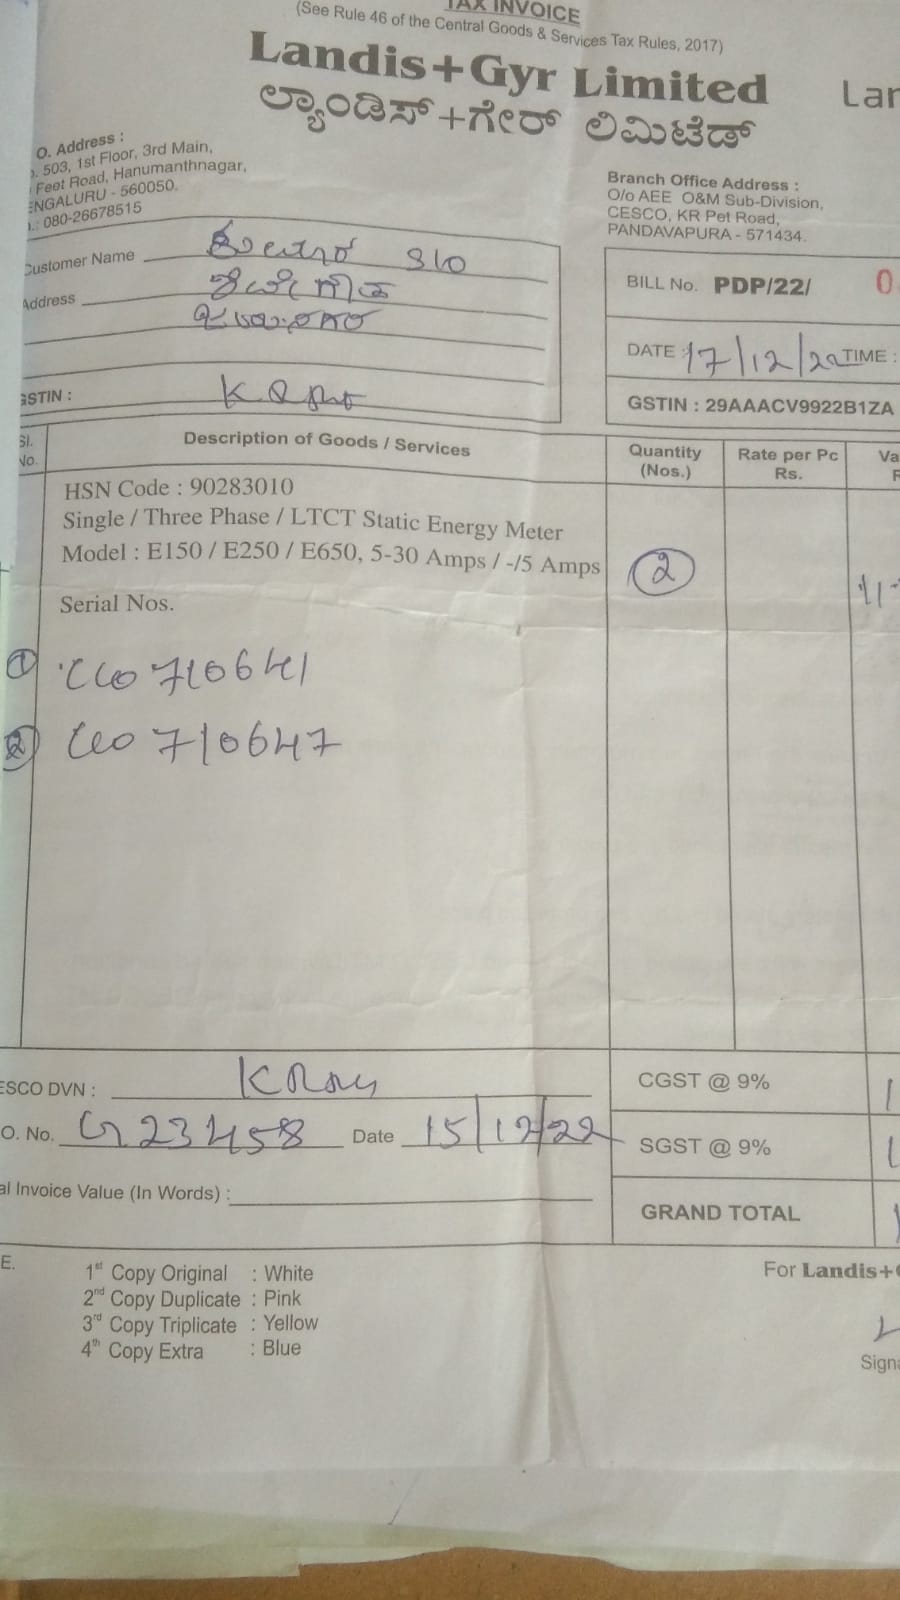 TAX INVOICE
(See Rule 46 of the Central Goods & Services Tax Rules, 2017)
Landis+Gyr Limited
ಲ್ಯಾಂಡಿಸ್+ಗೇರ್ ಲಿಮಿಟೆಡ್
O. Address :
503, 1st Floor, 3rd Main,
Feet Road, Hanumanthnagar,
ENGALURU - 560050.
080-26678515
Branch Office Address :
O/o AEE O&M Sub-Division,
CESCO, KR Pet Road,
PANDAVAPURA - 571434.
Customer Name S/O
Address
GSTIN :
BILL No. PDP/22/ 0
DATE : 17/12/22 TIME :
GSTIN : 29AAACV9922B1ZA
Sl. No. Description of Goods / Services Quantity (Nos.) Rate per Pc Rs.
HSN Code : 90283010
Single / Three Phase / LTCT Static Energy Meter
Model : E150 / E250 / E650, 5-30 Amps / -/5 Amps 2
Serial Nos.
1 710641
2 710647
ESCO DVN :
O. No. 23458 Date 15/12/22
al Invoice Value (In Words) :
CGST @ 9%
SGST @ 9%
GRAND TOTAL
E.
1st Copy Original : White
2nd Copy Duplicate : Pink
3rd Copy Triplicate : Yellow
4th Copy Extra : Blue
For Landis+
Signa